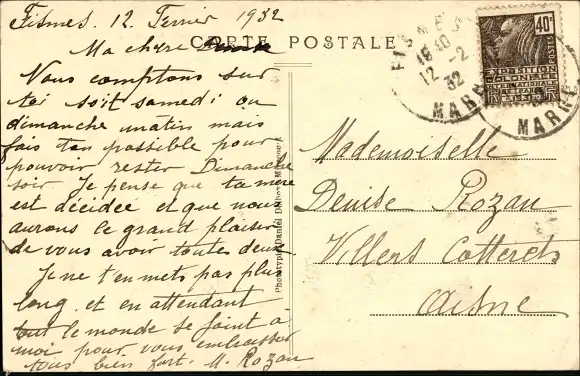 Fismes. 12. Février 1932
CARTE POSTALE
Ma chère Denise
Nous comptons sur
toi soit samedi ou
dimanche matin mais
fais ton possible pour
pouvoir rester Dimanche
soir. Je pense que ta mère
est décidée et que nous
aurons le grand plaisir
de vous avoir toutes deux
Je ne t'en mets pas plus
long et en attendant
tout le monde se joint à
moi pour vous embrasser
tous bien fort. M. Rozan
Phototypie Daniel
Mademoiselle
Denise Rozan
Villers Cotterets
Aisne
12 -2
32
MARNE
MARNE
40c
POSTES
EXPOSITION
COLONIALE
INTERNATIONALE